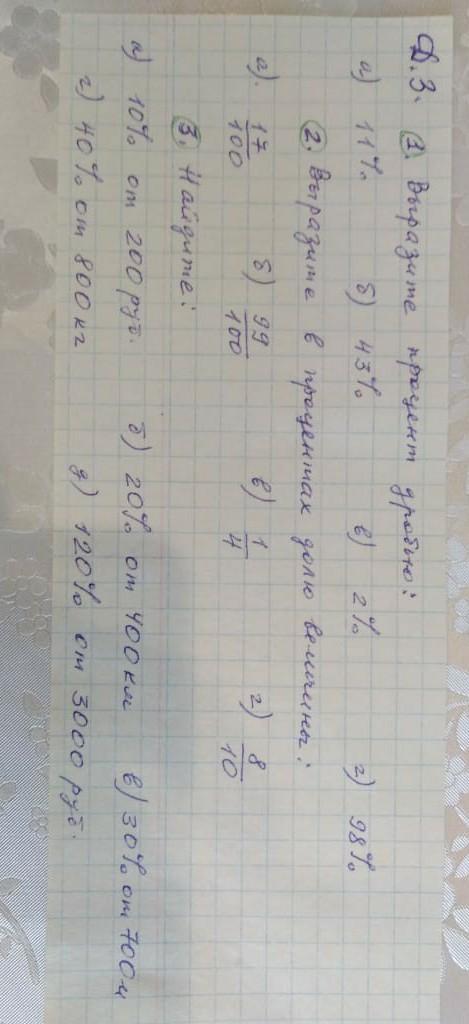 Д.З. 1. Выразите процент дробью:
а) 11% б) 43% в) 2% г) 98%
2. Выразите в процентах долю величины:
а). 17/100 б) 99/100 в) 1/4 г) 8/10
3. Найдите:
а) 10% от 200 руб. б) 20% от 400 кг в) 30% от 700 м
г) 40% от 800 кг д) 120% от 3000 руб.